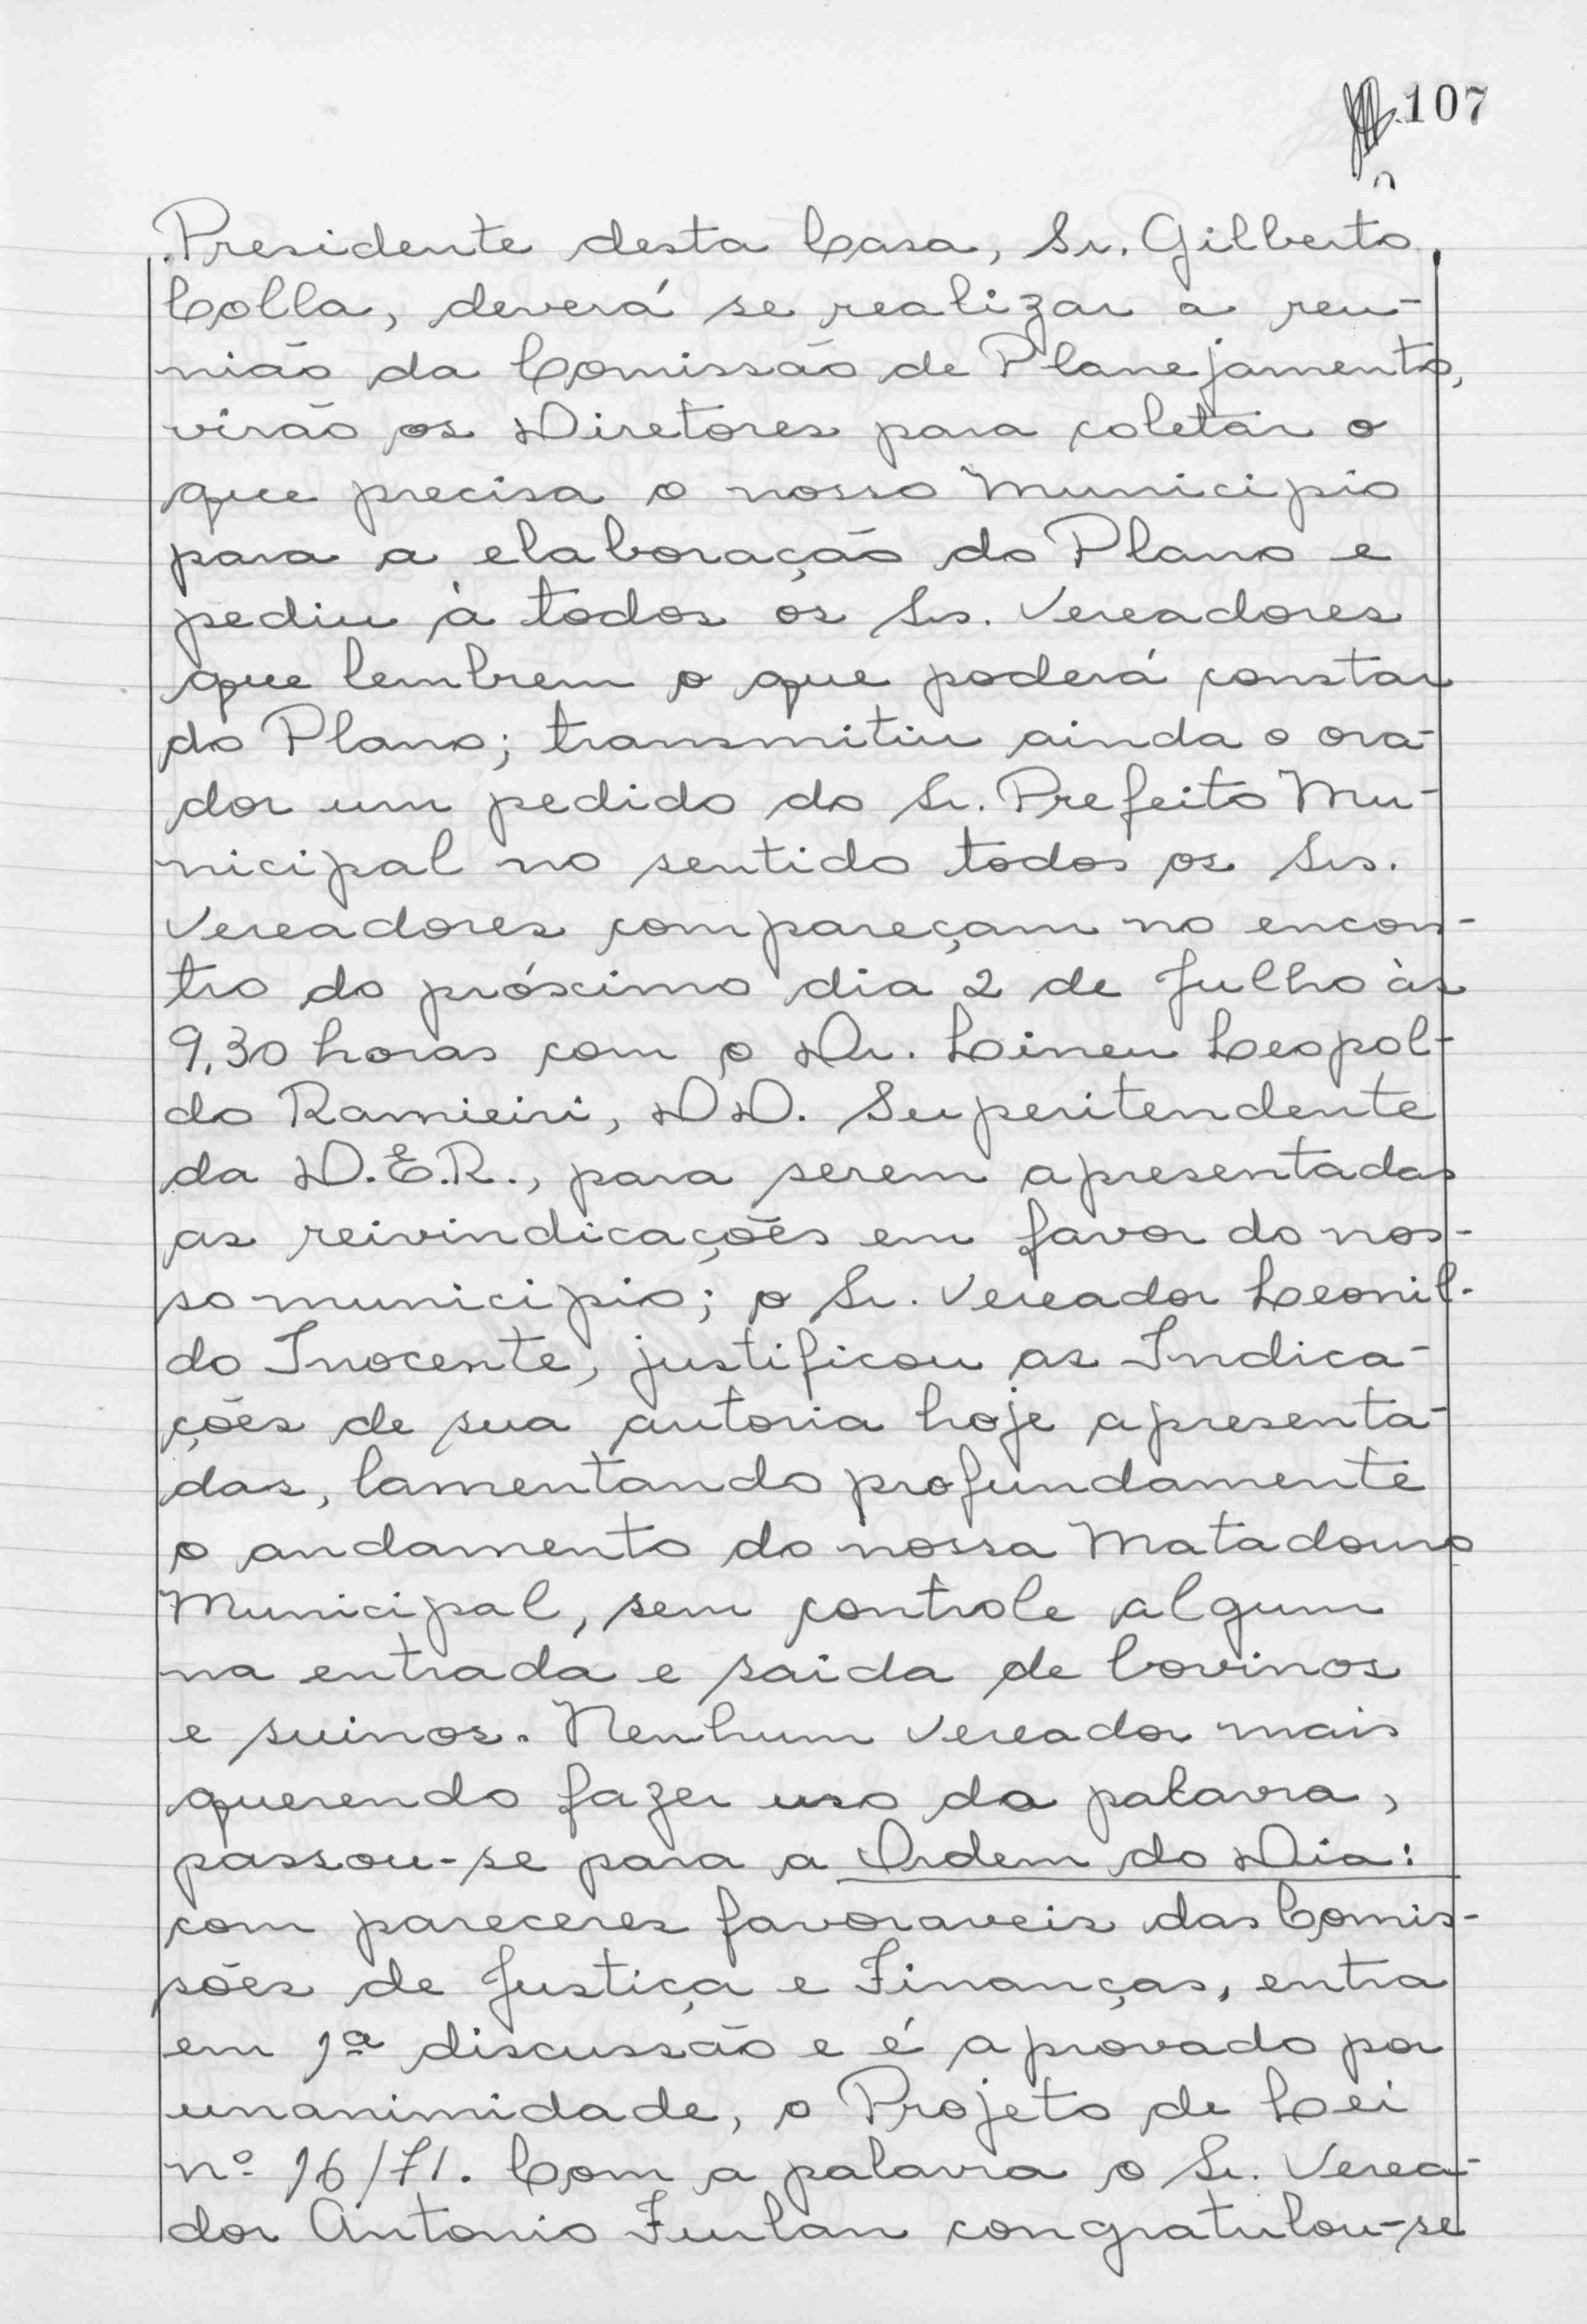 107
Presidente desta Casa, Sr. Gilberto
Colla, deverá se realizar a reu-
nião da Comissão de Planejamento,
virão os Diretores para coletar o
que precisa o nosso Municipio
para a elaboração do Plano e
pediu à todos os Srs. Vereadores
que lembrem o que poderá constar
do Plano; transmitiu ainda o ora-
dor um pedido do Sr. Prefeito Mu-
nicipal no sentido todos os Srs.
Vereadores compareçam no encon-
tro do próximo dia 2 de Julho às
9,30 horas com o Dr. Lineu Leopol-
do Ramieiri, DD. Superitendente
da D.E.R., para serem apresentadas
as reivindicações em favor do nos-
so municipio; o Sr. Vereador Leonil-
do Inocente, justificou as Indica-
ções de sua autoria hoje apresenta-
das, lamentando profundamente
o andamento do nossa Matadouro
Municipal, sem controle algum
na entrada e saida de bovinos
e suinos. Nenhum Vereador mais
querendo fazer uso da palavra,
passou-se para a Ordem do Dia:
com pareceres favoraveis das Comis-
sões de Justiça e Finanças, entra
em 1ª discussão e é aprovado por
unanimidade, o Projeto de Lei
nº 16/71. Com a palavra o Sr. Verea-
dor Antonio Furlan congratulou-se